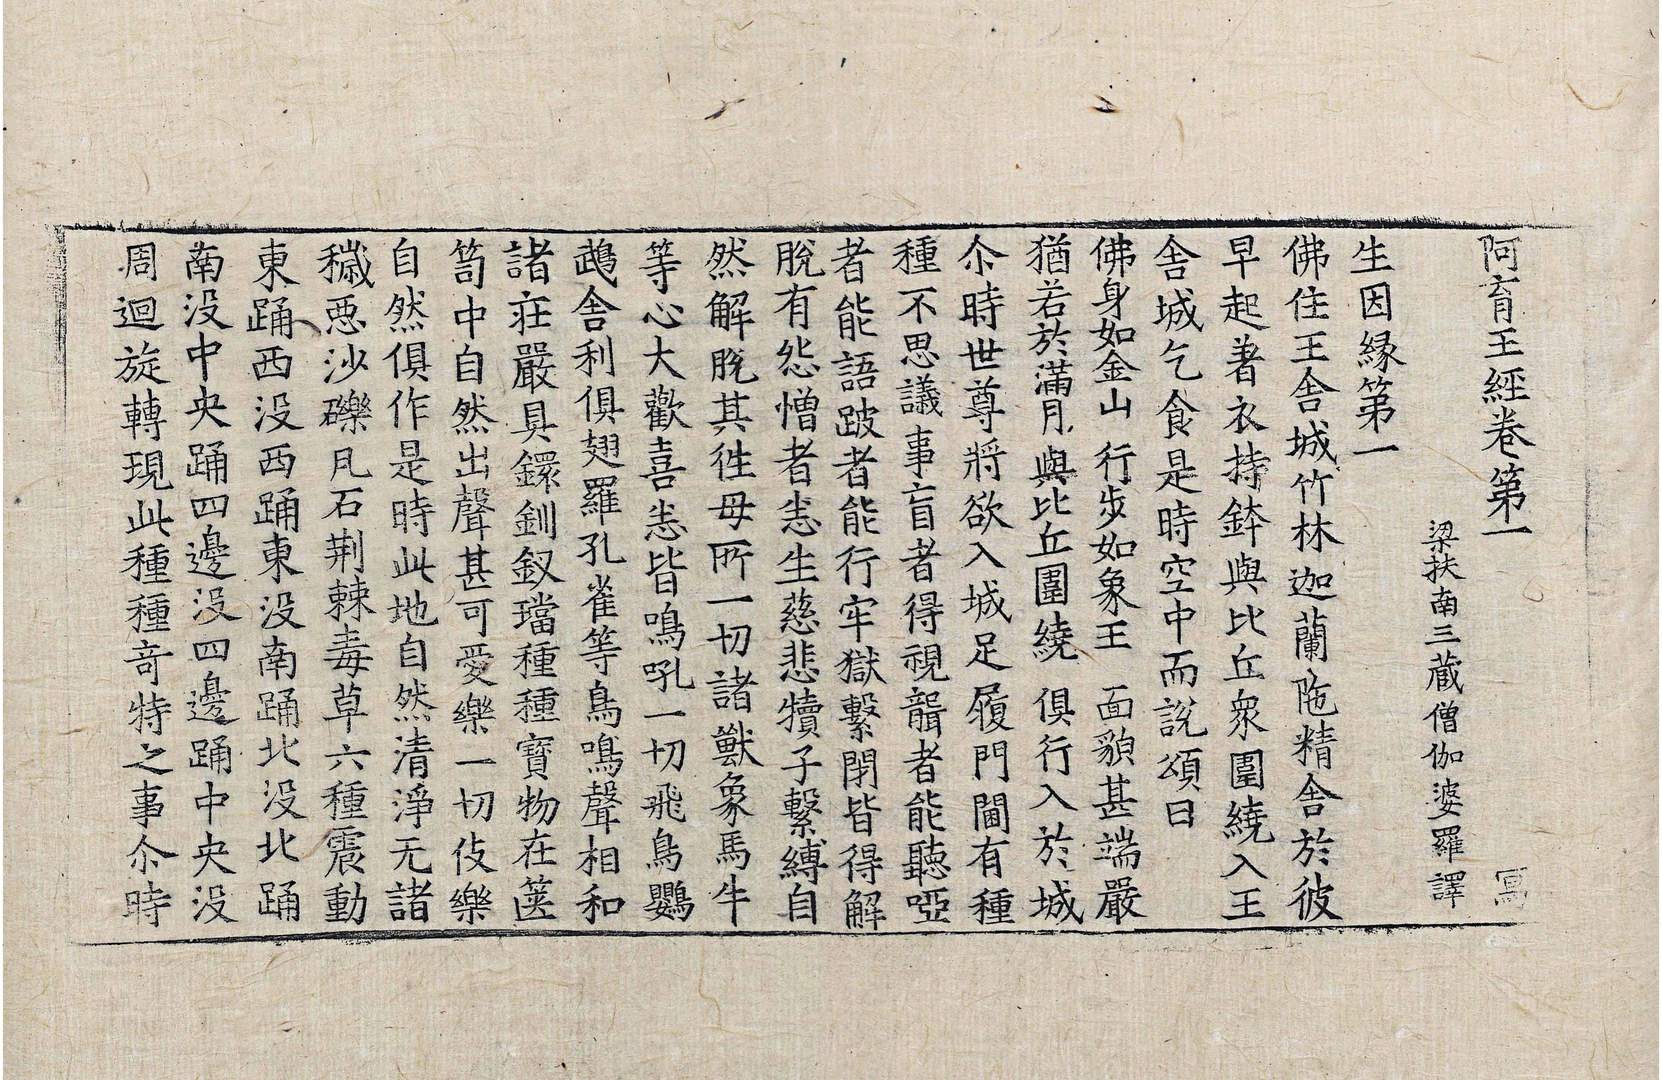 阿育王經卷第一　寫
梁扶南三藏僧伽婆羅譯
生因緣第一
佛住王舍城竹林迦蘭陁精舍於彼
早起著衣持鉢與比丘眾圍繞入王
舍城乞食是時空中而說頌曰
佛身如金山　行步如象王　面貌甚端嚴
猶若於滿月　與比丘圍繞　俱行入於城
尒時世尊將欲入城足履門閫有種
種不思議事盲者得視聾者能聽啞
者能語跛者能行牢獄繫閇皆得解
脫有怨憎者恚生慈悲犢子繫縛自
然解脫其徃母所一切諸獸象馬牛
等心大歡喜恚皆鳴吼一切飛鳥鸚
鵡舍利俱翅羅孔雀等鳥鳴聲相和
諸莊嚴具鐶釧釵璫種種寶物在篋
笥中自然出聲甚可愛樂一切伎樂
自然俱作是時此地自然清淨无諸
穢惡沙礫凡石荆棘毒草六種震動
東踊西没西踊東没南踊北没北踊
南没中央踊四邊没四邊踊中央没
周迴旋轉現此種種竒特之事尒時